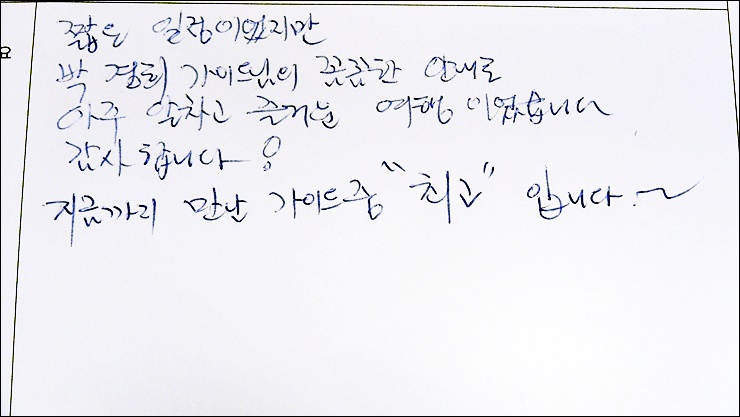 짧은 일정이었지만
박경희 가이드님의 꼼꼼한 안내로
아주 알차고 즐거운 여행이었습니다
감사합니다!
지금까지 만난 가이드중 "최고" 입니다.~
요